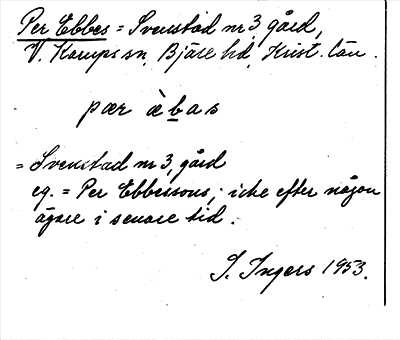 Per Ebbes = Svenstad nr 3, gård,
V. Karups sn, Bjäre hd, Krist. län.
pær èbas
= Svenstad nr 3, gård
eg. = Per Ebbessons; icke efter någon
ägare i senare tid.
I. Ingers 1953.